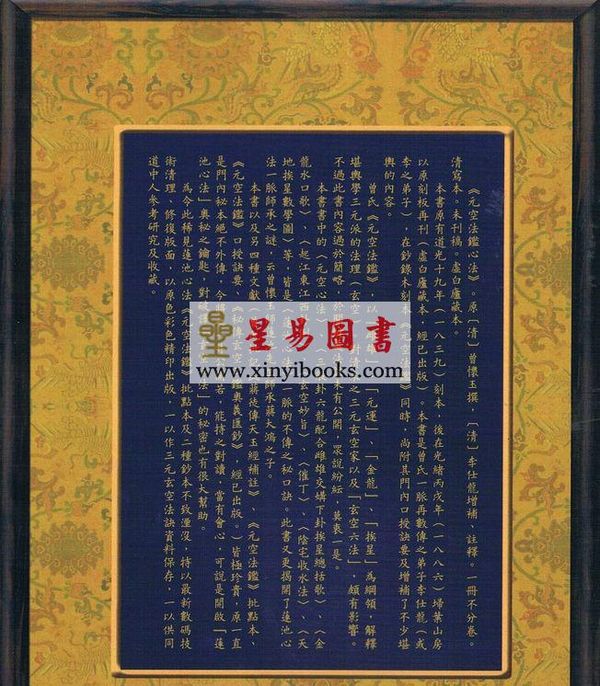 《元空法鑑心法》。原〔清〕曾懷玉撰，〔清〕李仕龍增補、註釋。一冊不分卷。
清寫本。未刊稿。虛白廬藏本。
本書原有道光十九年（一八三九）刻本，後在光緒丙戌年（一八八六）埽葉山房
以原刻板再刊（虛白廬藏本，經已出版）。本書是曾氏一脈再數傳之弟子李仕龍（或
李之弟子），在鈔錄木刻本《元空法鑑》同時，尚附其門內口授訣要及增補了不少堪
輿的內容。
曾氏《元空法鑑》，以「雌雄」、「元運」、「金龍」、「挨星」為綱領，解釋
堪輿學三元派的法理（玄空），對清之三元玄空家以及「玄空六法」，頗有影響。
不過此書內容過於簡略，於關法未有公開，眾說紛紜，莫衷一是。
本書書中的《元空心法》、卦六龍配合雌雄交媾下卦挨星總括歌》、《金
龍水口歌》、《起江東江西玄空妙旨》、《催丁》、《陰宅收水法》、《天
地挨星數學圖》等，皆是脈的不傳之秘口訣。此書又更揭開了蓮池心
法一脈師承之謎，云曾懷玉師承蔣大鴻之子。
本書以及另四種文獻蔣徒傳天玉經補註》、《元空法鑑》批點本、
《元空法鑑》口授訣要、《秘玄空鑑奧義匯鈔》，經已出版。）皆極珍貴，原一直
是門內秘本絕不外傳，今將若，能持之對讀，當有會心，可說是開啟「蓮
池心法」奧秘之鑰匙，對破法」的秘密也有很大幫助。
為令此稀見蓮池心法《元空法鑑》批點本及二種鈔本不致湮沒，特以最新數碼技
術清理，修復版面，以原色彩色精印出版，一以作三元玄空法訣資料保存，一以供同
道中人參考研究及收藏。
星易圖書
www.xinyibooks.com